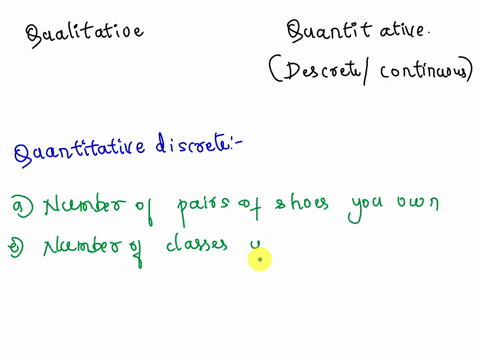 Qualitative
Quantitative.
(Descrete/ continuous)
Quantitative discrete:-
a) Number of pairs of shoes you own
e) Number of classes y